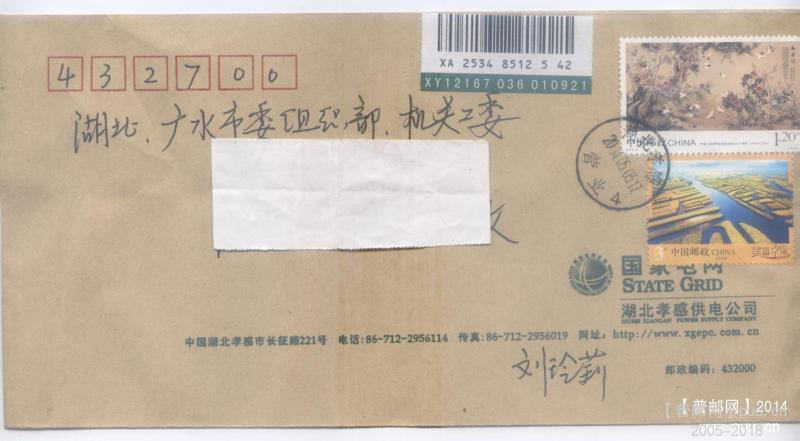 XA 2534 8512 5 42
XY12167 036 010921
432700
湖北、广水市委组织部、机关工委
文
1.20
中国邮政 CHINA
湖北孝感
营业
4
中国邮政 CHINA
美丽中国
国家电网
STATE GRID
湖北孝感供电公司
HUBEI XIAOGAN POWER SUPPLY COMPANY
中国湖北孝感市长征路221号 电话:86-712-2956114 传真:86-712-2956019 网址: http://www.xgepc.com.cn
刘玲莉
邮政编码: 432000
【普邮网】2014
2005-2018